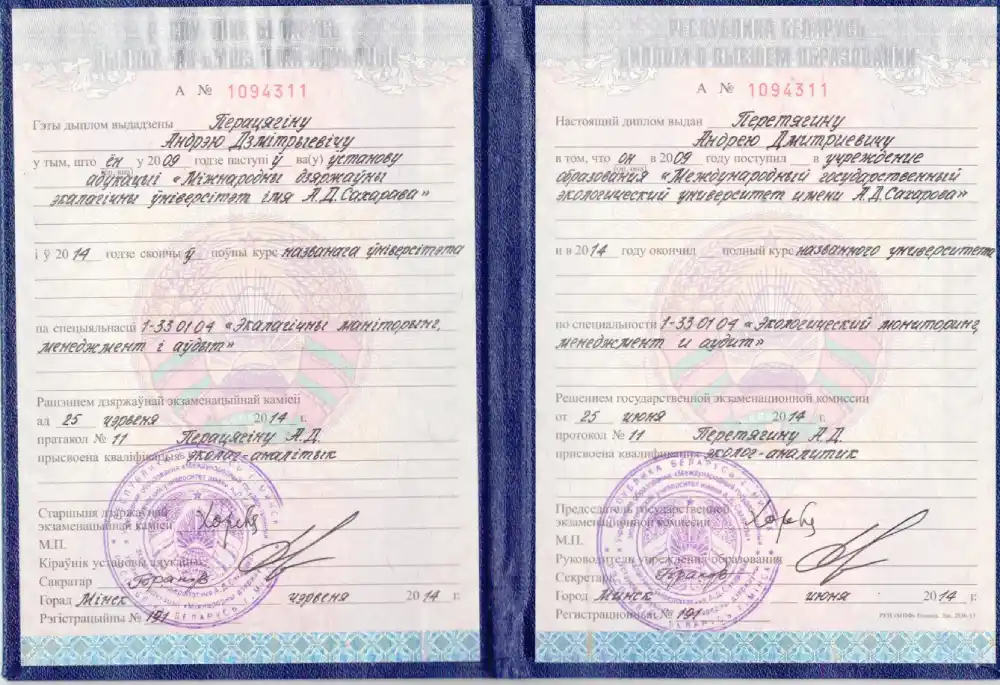 А № 1094311
Гэты дыплом выдадзены Перацягіну
Андрэю Дзмітрыевічу
у тым, што ён у 2009 годзе паступіў ва(у) установу
адукацыі «Міжнародны дзяржаўны
экалагічны ўніверсітэт імя А.Д.Сахарава»
і ў 2014 годзе скончыў поўны курс названага ўніверсітэта
па спецыяльнасці 1-33 01 04 «Экалагічны маніторынг,
менеджмент і аўдыт»
Рашэннем дзяржаўнай экзаменацыйнай камісіі
ад 25 чэрвеня 2014 г.
пратакол № 11 Перацягіну А.Д.
прысвоена кваліфікацыя эколаг-аналітык
Старшыня дзяржаўнай
экзаменацыйнай камісіі
М.П.
Кіраўнік установы адукацыі
Сакратар
Горад Мінск чэрвеня 2014 г.
Рэгістрацыйны № 191
РЕСПУБЛИКА БЕЛАРУСЬ
ДИПЛОМ О ВЫСШЕМ ОБРАЗОВАНИИ
А № 1094311
Настоящий диплом выдан Перетягину
Андрею Дмитриевичу
в том, что он в 2009 году поступил в учреждение
образования «Международный государственный
экологический университет имени А.Д.Сахарова»
и в 2014 году окончил полный курс названного университета
по специальности 1-33 01 04 «Экологический мониторинг,
менеджмент и аудит»
Решением государственной экзаменационной комиссии
от 25 июня 2014 г.
протокол № 11 Перетягину А.Д.
присвоена квалификация эколог-аналитик
Председатель государственной
экзаменационной комиссии
М.П.
Руководитель учреждения образования
Секретарь
Город Минск июня 2014 г.
Регистрационный № 191